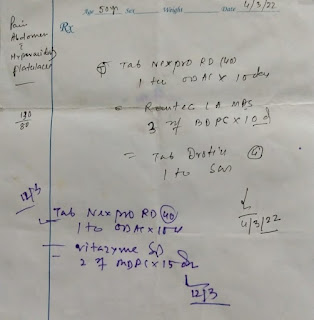 Age 50yr Sex Weight Date 4/3/22
Pain
Abdomen
Hyperacidity
Flatulence
Rx
Tab Nexpro RD (40)
1 to ODAC x 10 day
3 BDPC x 10 d
180
80
Tab Drotin
1 to SOS
4/3/22
12/3
Tab Nexpro RD 40
1 to ODAC x 15 d
Vitazyme
2 BDPC x 15 d
12/3